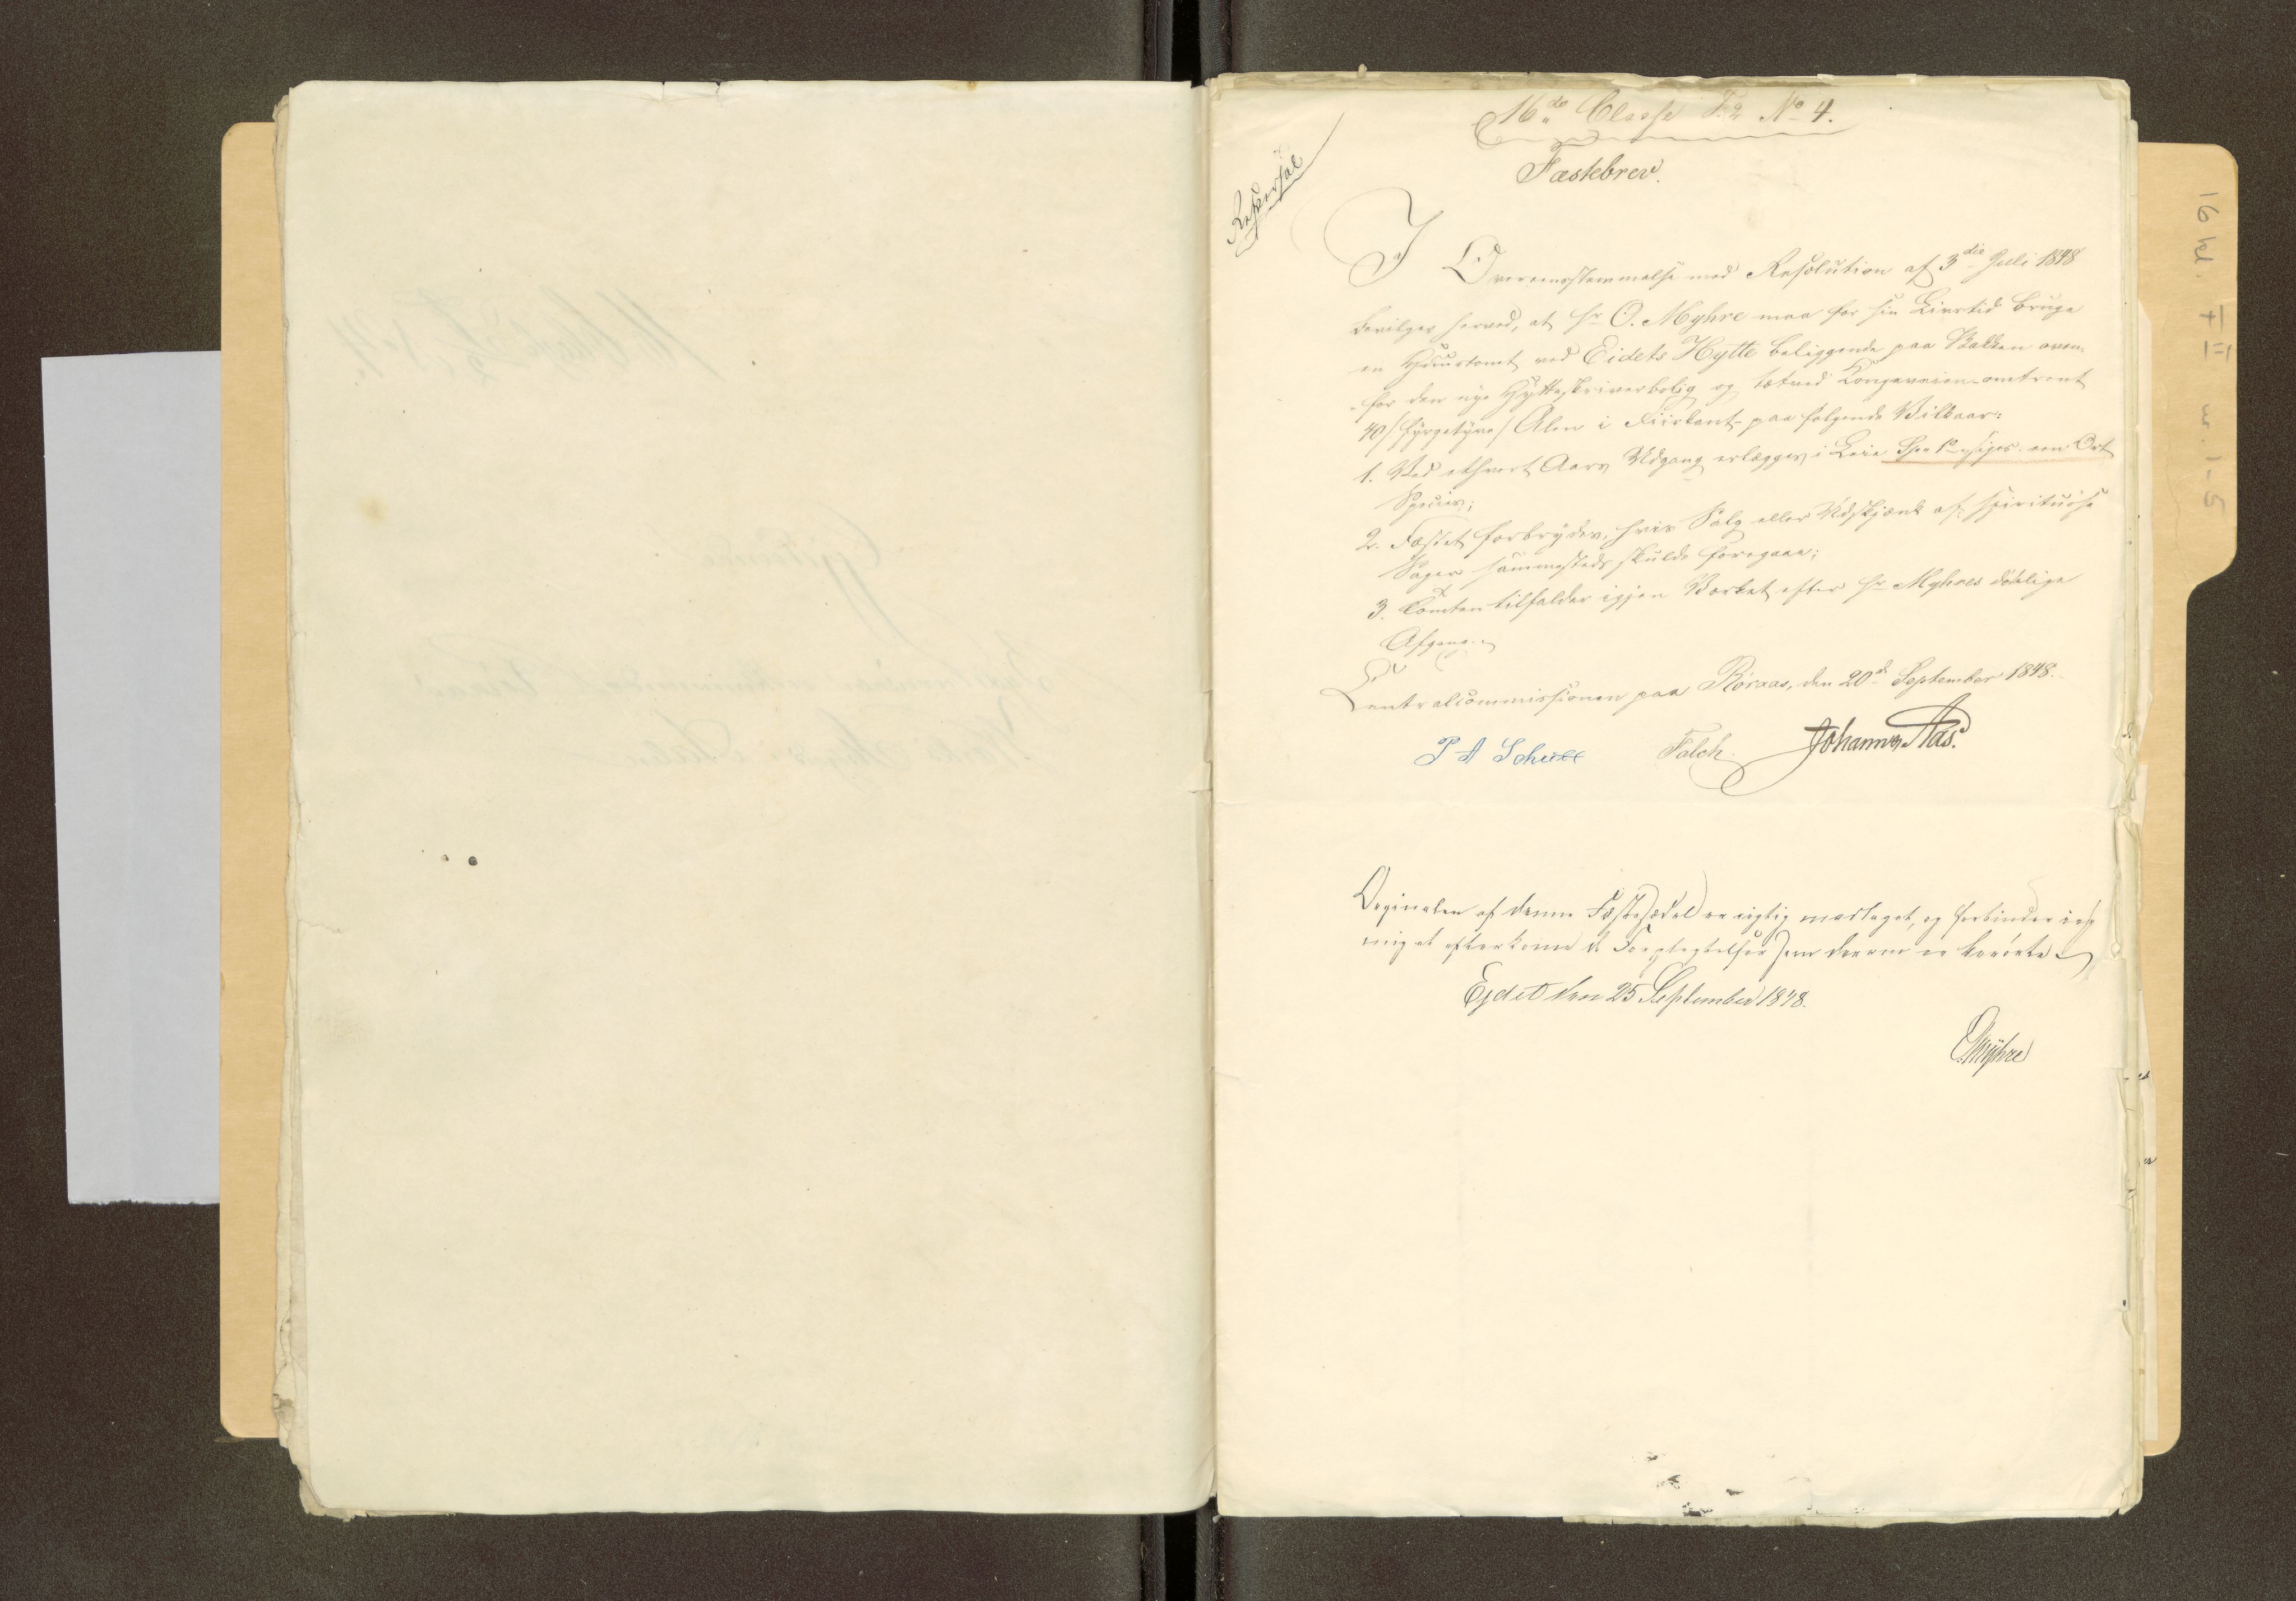 16de Classe F. 2 No 4.
Fæstebrev.
Reversal
I Overeensstemmelse med Resolution af 3die Juli 1848
bevilges herved, at Hr O. Myhre maa for sin Livstid bruge
en Huustomt ved Eidets Hytte beliggende paa Bakken oven-
for den nye Hytteskriverbolig og tætved Kongeveien omtrent
40/fyrgetyve/ Alen i Fiirkant paa følgende Vilkaar:
1. Ved ethvert Aars Udgang erlægges i Leie siges een Ort
Species;
2. Fæstet forbrydes, hvis Salg eller Udskjænk af spirituøse
Sager sammesteds skulde foregaae;
3. Tomten tilfalder igjen Værket efter Hr Myhres dødelige
Afgang.
Centralcommissionen paa Røraas, den 20de September 1848.
P A Schult Falch Johannes Aas.
Orginalen af denne Fæstesædel er rigtig modtaget, og forbinder jeg
mig at efterkomme de Forpligtelser som derom er berørte
Ejdet den 25 September 1848.
OMyhre
16 kl. F II nr. 1-5